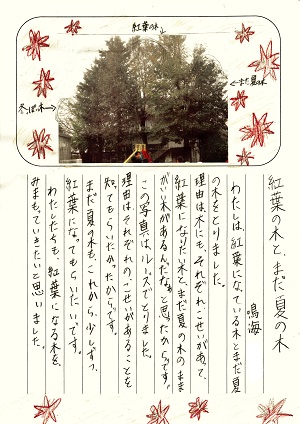 紅葉の木
まだ夏の木
冬っぽい木
紅葉の木と、まだ夏の木
鳴海
わたしは、紅葉になっている木とまだ夏
の木をとりました。
理由は木にも、それぞれこせいがあって、
紅葉になりたい木と、まだ夏の木のまま
がいい木があるんだなぁと思ったからです。
この写真は、ルーズでとりました。
理由は、それぞれのこせいがあることを
知ってもらいたかったからです。
まだ夏の木も、これから少しずつ、
紅葉になってもらいたいです。
わたしたちも、紅葉になる木を、
みまもっていきたいと思いました。